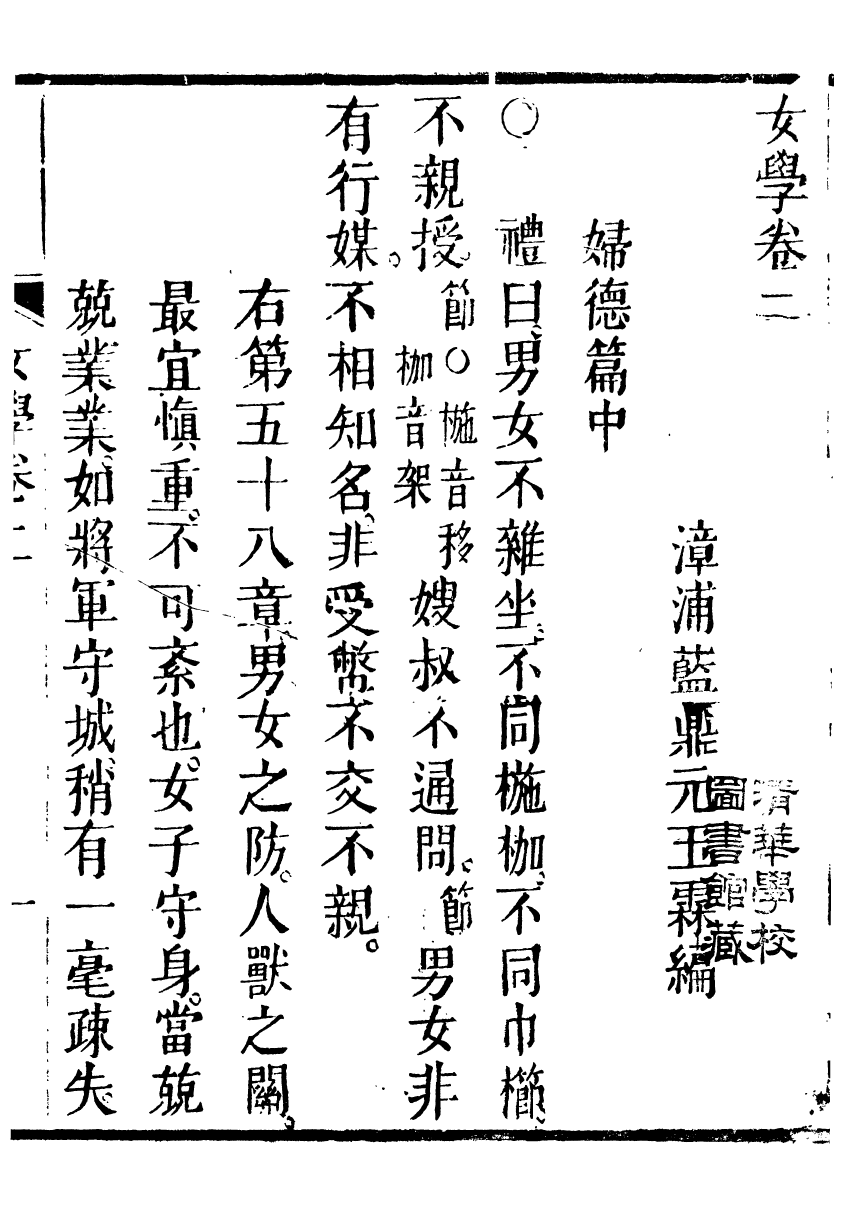 女學卷二
清華學校
圖書館藏
漳浦藍鼎元玉霖編
婦德篇中
〇 禮曰、男女不雜坐、不同椸枷、不同巾櫛、
不親授。節〇椸音移枷音架嫂叔不通問。節男女非
有行媒。不相知名。非受幣不交不親。
右第五十八章男女之防。人獸之關。
最宜慎重。不可紊也。女子守身。當兢
兢業業。如將軍守城稍有一毫疎失。
女學卷二
一